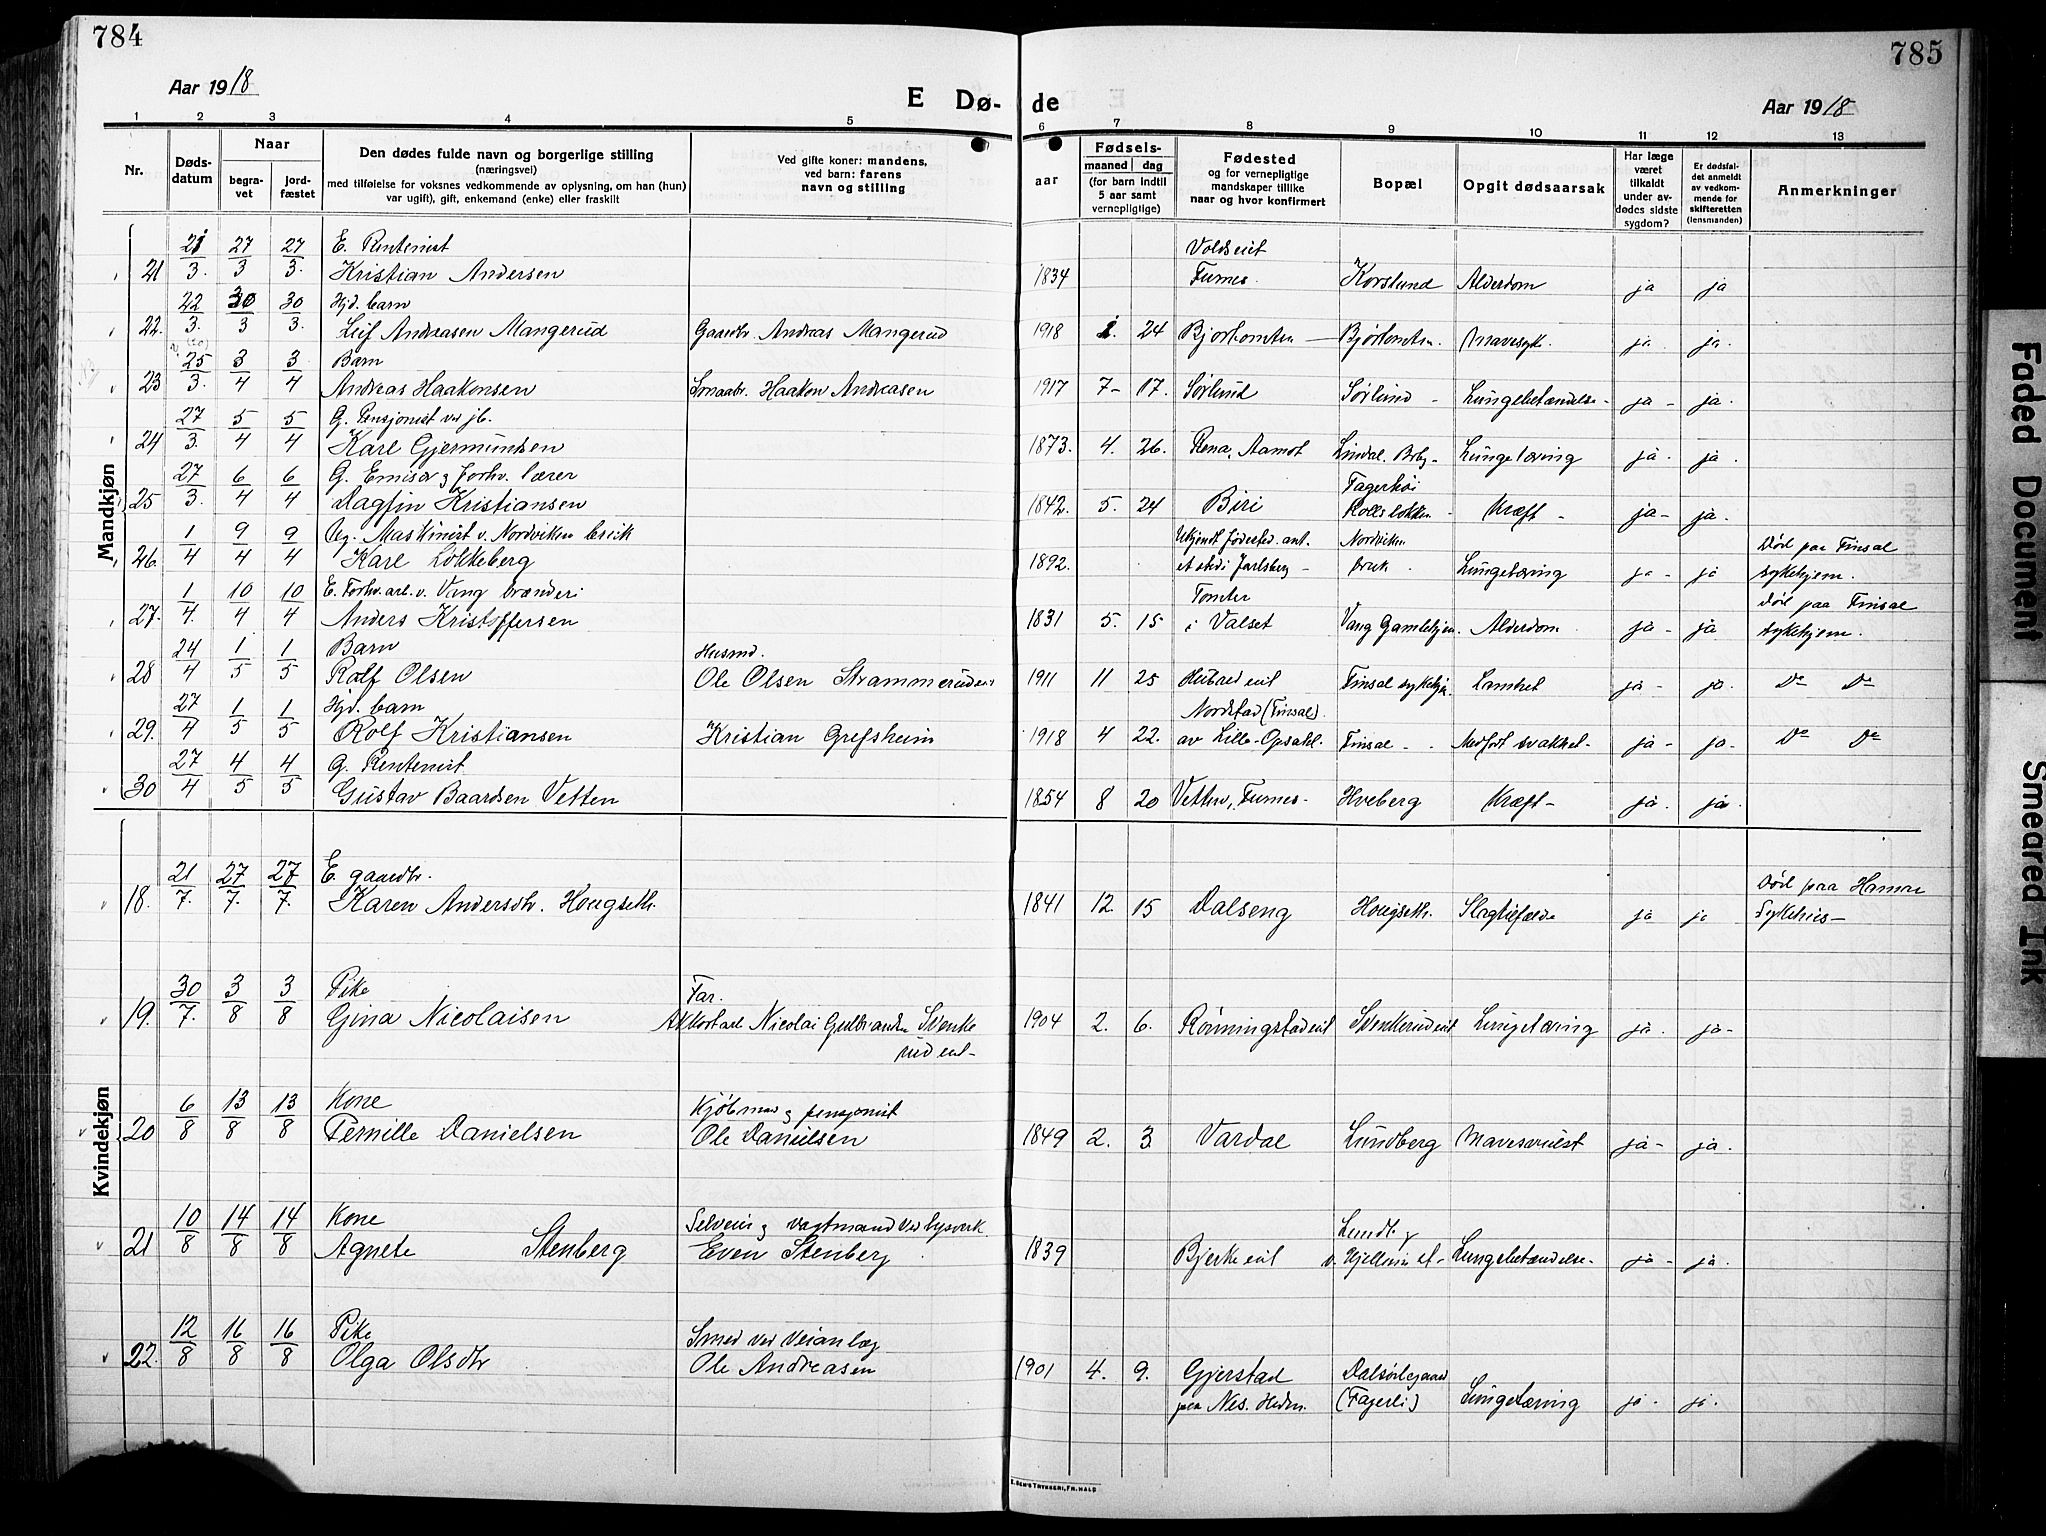 784
785
Aar 1918
E Dø-
de
Aar 1918
1 2 3 4 5 6 7 8 9 10 11 12 13
Nr.
Døds-
datum
Naar
begra-
vet
jord-
fæstet
Den dødes fulde navn og borgerlige stilling
(næringsvei)
med tilføielse for voksnes vedkommende av oplysning, om han (hun)
var ugift), gift, enkemand (enke) eller fraskilt
Ved gifte koner: mandens,
ved barn: farens
navn og stilling
aar
Fødsels-
maaned dag
(for barn indtil
5 aar samt
vernepligtige)
Fødested
og for vernepligtige
mandskaper tillike
naar og hvor konfirmert
Bopæl
Opgit dødsaarsak
Har læge
været
tilkaldt
under av-
dødes sidste
sygdom?
Er dødsfal-
det anmeldt
av vedkom-
mende for
skifteretten
(lensmanden)
Anmerkninger
Mandkjøn
21/3. 27/3 27/3. E. Rentenist Voldseiet
21 Kristian Andersen 1834 Furnes. Korslund Alderdom ja ja
22/3. 30/3 30/3. Hjd. barn
22. Leif Andreasen Mangerud Gaardbr. Andreas Mangerud 1918 1. 24 Bjørkomten — Bjørkomten. Mavesyk. ja. ja.
25/3. 3/4 3/4 Barn
23 Andreas Haakonsen Smaabr. Haakon Andreasen 1917 7- 17. Sørlund Sørlund - Lungebetændelse- ja - ja.
27/3. 5/4 5/4 G. Pensjonist ved jb.
24 Karl Gjermundsen 1873. 4. 26. Rena, Aamot Lindal. Brby- Lungetæring ja. ja.
27/3. 6/4 6/4 G. Emisær & forhv. lærer Fagerhøi
25 Dagfin Kristiansen 1842. 5. 24 Biri Kræft - ja - ja.
1/4 9/4 9/4 Ug. Maskinist v. Nordviken bruk Ukjendt Fødested. ant. Nordviken Død paa Finsal
26. Karl Løkkeberg 1892. et sted i Jarlsberg - bruk. Lungetæring ja - ja sykehjem.
1/4. 10/4 10/4 E. Forhv. arb. v. Vang brænderi Tomter Død paa Finsal
27. Anders Kristoffersen 1831 5. 15 i Valset Vang Gamlehjem. Alderdom ja - ja sykehjem.
24/4 1/5 1/5 Barn Husmd.
28 Rolf Olsen Ole Olsen Strammerudeiet 1911 11 25 Finsal sykehjem Lamhet ja - ja. Do Do
27/4 1/5 1/5 Hjd. barn Nordstad (Finsal).
29. Rolf Kristiansen Kristian Grefsheim 1918 4 22. av Lille-Opsahl. Finsal - Medfødt svakhet- ja - ja. Do Do
27/4 4/5 4/5 G. Rentenist.
30 Gustav Baardsen Vetten 1854 8 20 Vetten, Furnes- Hveberg Kræft - ja. ja.
Kvindekjøn
21/7. 27/7. 27/7. E. gaardbr. Død paa Hamar
18. Karen Andersdtr. Hougseth. 1841 12. 15 Dalseng Hougseth. Slagtilfælde ja ja Sykehus-
30/7. 3/8 3/8 Pike Far.
19. Gina Nicolaisen Akkortarb Nicolai Gulbrandsen Svenke 1904 2. 6. Rønningstadeiet Svenkerudeiet Lungetæring ja. ja-
rudeiet-
6/8 13/8 13/8 Kone Kjøbmand & pensjonist
20 Pernille Danielsen Ole Danielsen 1849 2. 3. Vardal Lundberg Mavesvulst ja - ja.
10/8 14/8 14/8 Kone Selveier & vagtmand ved lysverk
21 Agnete Stenberg Even Stenberg 1839 Bjerkeeiet v. Hjellum st- Lungebetændelse- ja - ja.
12/8 16/8 16/8 Pike Smed ved Veianlæg
22. Olga Olsdtr Ole Andreasen 1901 4. 9. Gjerstad Dalsørlegaard
paa Nes. Hedm. (Fagerli) Lungetæring ja. ja.
TRYKKERI, FR.HALD
Faded Document
Smeared Ink